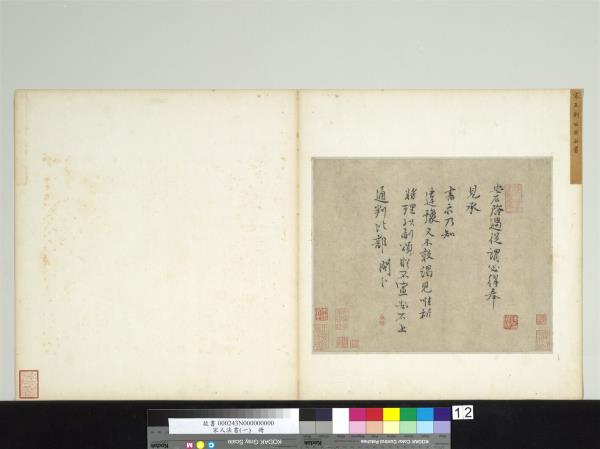 安石啟過從謂必得奉
見承
書示乃知
違豫又不敢謁見唯祈
將理以副頃馳不宣安石上
通判比部 閣下
宋王荊公
故書 000243N000000000
宋人法書(一) 冊
12
Kodak
KODAK Gray Scale
C Y M
Kodak
KODAK Color Control Patches